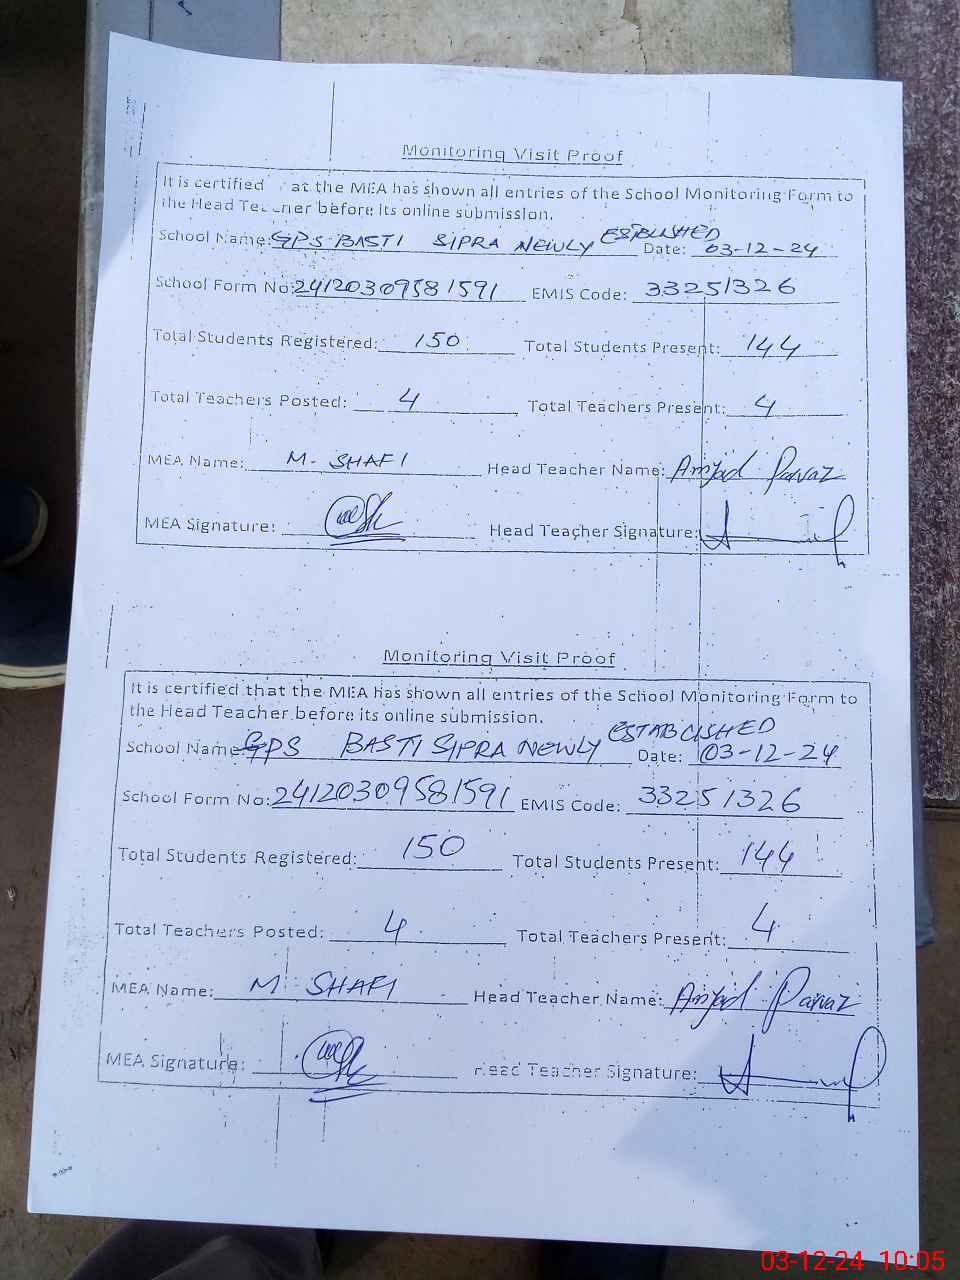 Monitoring Visit Proof
It is certified at the MEA has shown all entries of the School Monitoring Form to
the Head Teacher before its online submission.
School Name: GPS BASTI SIPRA NEWLY ESTBLISHED Date: 03-12-24
School Form No: 24120309581591 EMIS Code: 33251326
Total Students Registered: 150 Total Students Present: 144
Total Teachers Posted: 4 Total Teachers Present: 4
MEA Name: M. SHAFI Head Teacher Name: Amjad Parvaz
MEA Signature: Head Teacher Signature:
Monitoring Visit Proof
It is certified that the MEA has shown all entries of the School Monitoring Form to
the Head Teacher before its online submission.
School Name: GPS BASTI SIPRA NEWLY ESTABLISHED Date: 03-12-24
School Form No: 24120309581591 EMIS Code: 33251326
Total Students Registered: 150 Total Students Present: 144
Total Teachers Posted: 4 Total Teachers Present: 4
MEA Name: M SHAFI Head Teacher Name: Amjad Parvaz
MEA Signature: Head Teacher Signature:
03-12-24 10:05